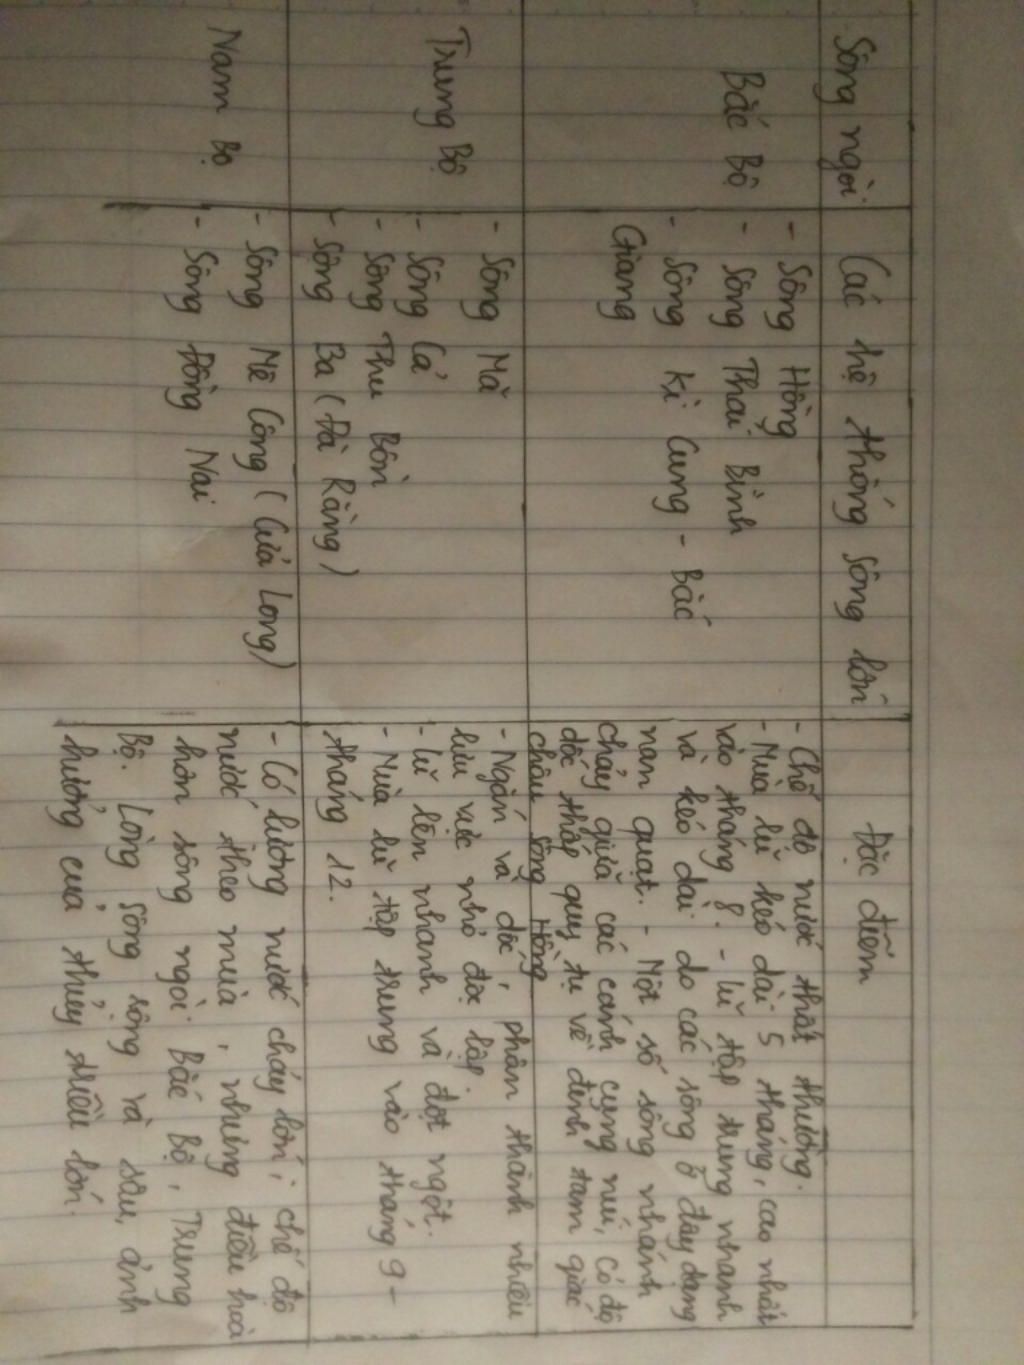 Sông ngòi
Các hệ thống sông lớn
Đặc điểm
Bắc Bộ
- Sông Hồng
- Sông Thái Bình
- Sông Kì Cung - Bắc
Giang
- Chế độ nước thất thường.
- Mùa lũ kéo dài 5 tháng, cao nhất
vào tháng 8. - Lũ tập trung nhanh
và kéo dài do các sông ở đây dạng
nan quạt. - Một số sông nhánh
chảy giữa các cánh cung núi, có độ
dốc thấp quy tụ về đỉnh tam giác
châu sông Hồng
Trung Bộ
- Sông Mã
- Sông Cả
- Sông Thu Bồn
- Sông Ba (Đà Rằng)
- Ngắn và dốc, phân thành nhiều
lưu vực nhỏ độc lập.
- Lũ lên nhanh và đột ngột.
- Mùa lũ tập trung vào tháng 9 -
tháng 12.
Nam Bộ
- Sông Mê Công (Cửu Long)
- Sông Đồng Nai
- Có lượng nước chảy lớn, chế độ
nước theo mùa, nhưng điều hoà
hơn sông ngòi Bắc Bộ, Trung
Bộ. Lòng sông rộng và sâu, ảnh
hưởng của thủy triều lớn.